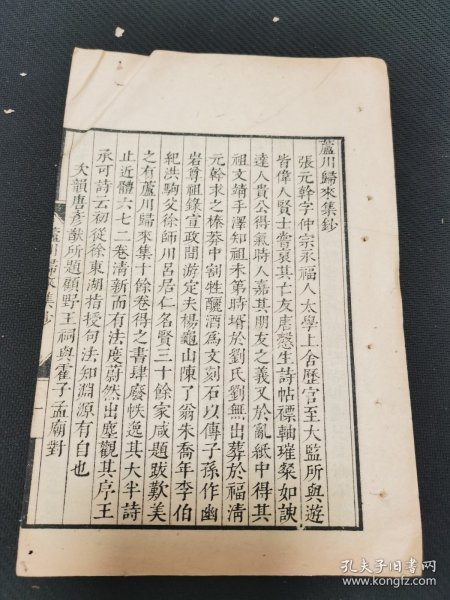 蘆川歸來集鈔
張元幹字仲宗永福人太學上舍歷官至大監所與遊
皆偉人賢士嘗哀其亡友唐愨生詩帖褾軸璀粲如諛
達人貴公得氣時人嘉其朋友之義又於亂紙中得其
祖文靖手澤知祖未第時壻於劉氏劉無出葬於福淸
元幹求之榛莽中割牲釃酒為文刻石以傳子孫作幽
岩尊祖錄宣政間游定夫楊龜山陳了翁朱喬年李伯
紀洪駒父徐師川呂居仁名賢三十餘家咸題跋歎美
之有蘆川歸來集十餘卷得之書肆廢帙逸其大半詩
止近體六七二卷清新而有法度蔚然出塵觀其序王
承可詩云初從徐東湖指授句法知淵源有自也
次韻唐彥猷所題顧野王祠與霍子孟廟對
蘆川歸來集鈔
一
孔夫子旧书网
www.kongfz.com